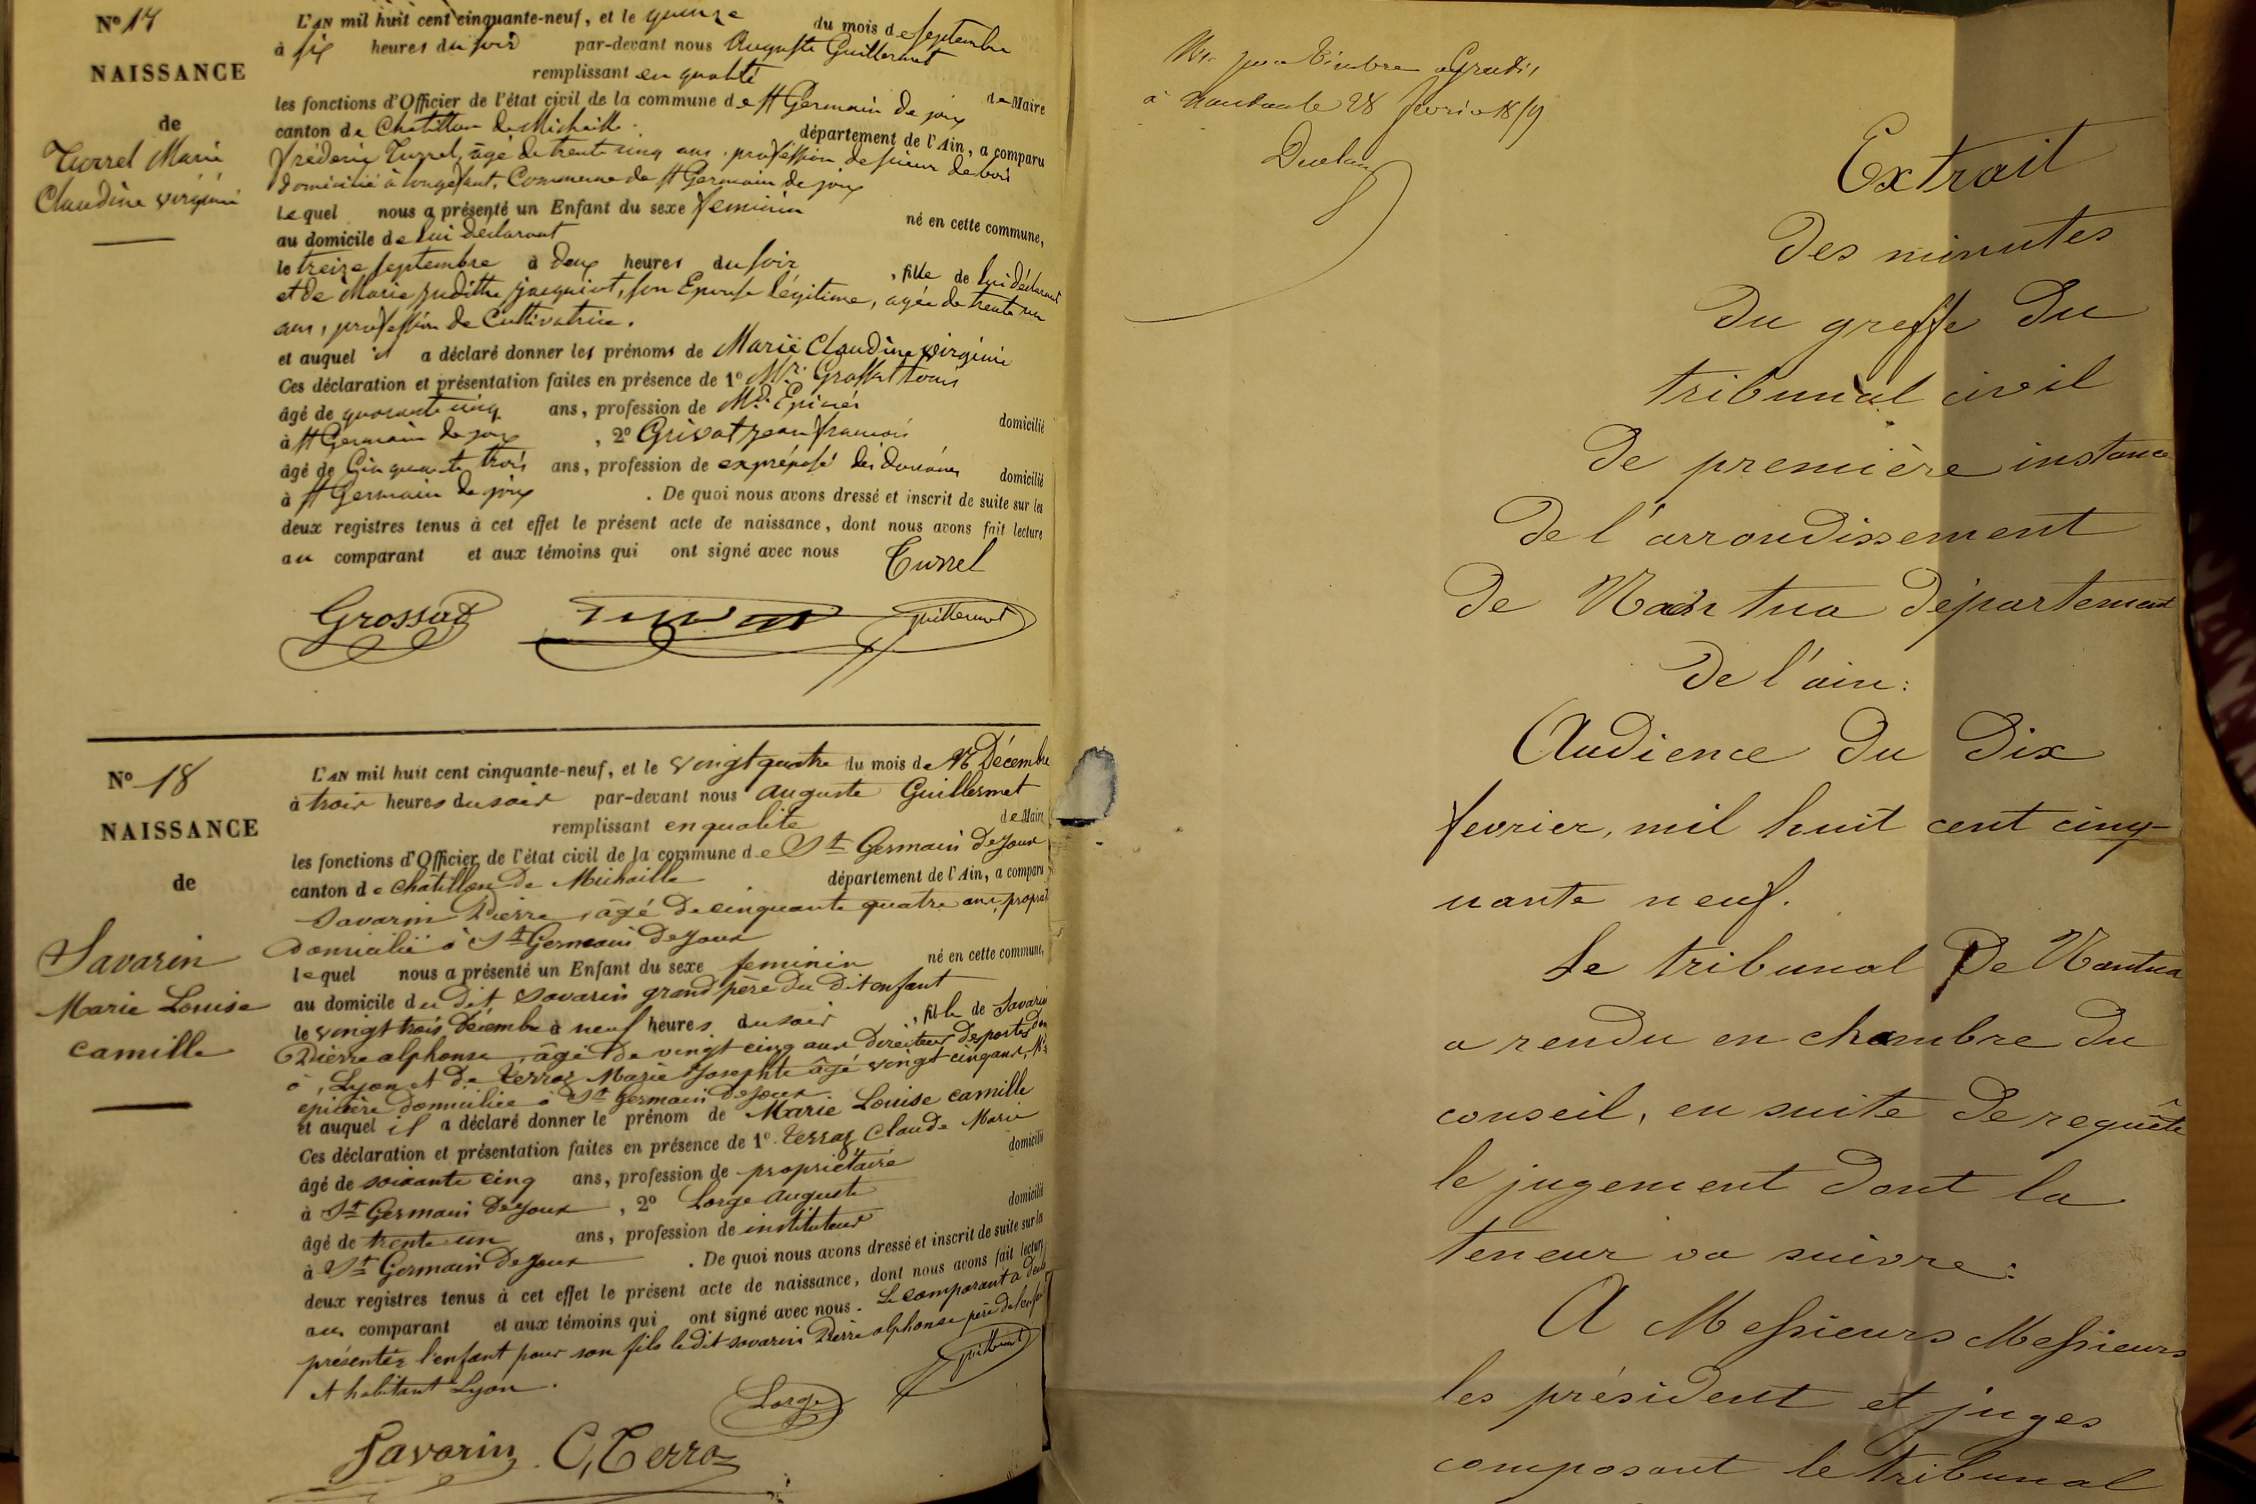 N° 17
NAISSANCE
de
Turrel Marie
Claudine virginie
L'AN mil huit cent cinquante-neuf, et le quinze du mois de septembre
à six heures du soir par-devant nous Auguste Guillermet
remplissant en qualité de Maire
les fonctions d'Officier de l'état civil de la commune de St Germain de joux
canton de Chatillon de Michaille département de l'Ain, a comparu
frédéric Turrel, âgé de trente cinq ans, profession de scieur de bois
domicilié à longefant, Commune de St Germain de joux
lequel nous a présenté un Enfant du sexe feminin né en cette commune,
au domicile de lui déclarant
le treize septembre à deux heures du soir, fille de lui déclarant
et de Marie Judithe jacquiot, son Epouse légitime, agée de trente un
ans, profession de Cultivatrice.
et auquel il a déclaré donner les prénoms de Marie Claudine virginie
Ces déclaration et présentation faites en présence de 1° Mr. Grossat louis
âgé de quarante cinq ans, profession de Md. Epicier domicilié
à St Germain de joux, 2° Grivat jean françois
âgé de Cinquante trois ans, profession de expréposé des douanes domicilié
à St Germain de joux. De quoi nous avons dressé et inscrit de suite sur les
deux registres tenus à cet effet le présent acte de naissance, dont nous avons fait lecture
au comparant et aux témoins qui ont signé avec nous
Turrel
Grossat guillermet
N° 18
NAISSANCE
de
Savarin
Marie Louise
camille
L'AN mil huit cent cinquante-neuf, et le vingt quatre du mois de Décembre
à trois heures du soir par-devant nous auguste Guillermet
remplissant en qualité de Maire
les fonctions d'Officier de l'état civil de la commune de St Germain de joux
canton de chatillon de Michaille département de l'Ain, a comparu
Savarin Pierre, âgé de cinquante quatre ans, propriét
domicilié à St Germain de joux
lequel nous a présenté un Enfant du sexe feminin né en cette commune,
au domicile du dit Savarin grand père du dit enfant
le vingt trois Décembre à neuf heures du soir, fille de Savarin
Pierre alphonse, âgé de vingt cinq ans Directeur des postes
à Lyon et de Terraz Marie Josephte âgé vingt cinq ans,
epicière domiciliée à St Germain de joux
et auquel il a déclaré donner le prénom de Marie Louise camille
Ces déclaration et présentation faites en présence de 1° Terraz Claude Marie
âgé de soixante cinq ans, profession de propriétaire domicilié
à St Germain de joux, 2° Lorge auguste
âgé de trente un ans, profession de instituteur domicilié
à St Germain de joux. De quoi nous avons dressé et inscrit de suite sur les
deux registres tenus à cet effet le présent acte de naissance, dont nous avons fait lecture
au comparant et aux témoins qui ont signé avec nous. Le comparant a
présenter l'enfant pour son fils le dit savarin Pierre alphonse père de
et habitant Lyon.
Lorge guillermet
Savarin C, Terraz
Vis pour timbre Gratis
à Nantua le 28 février
Extrait
des minutes
du greffe du
tribunal civil
de première instance
de l'arrondissement
de Nantua département
de l'ain:
Audience du dix
fevrier, mil huit cent cinq-
uante neuf.
Le tribunal de Nantua
a rendu en chambre du
conseil, en suite de requête
le jugement dont la
teneur va suivre:
A Messieurs Messieurs
les président et juges
composant le tribunal